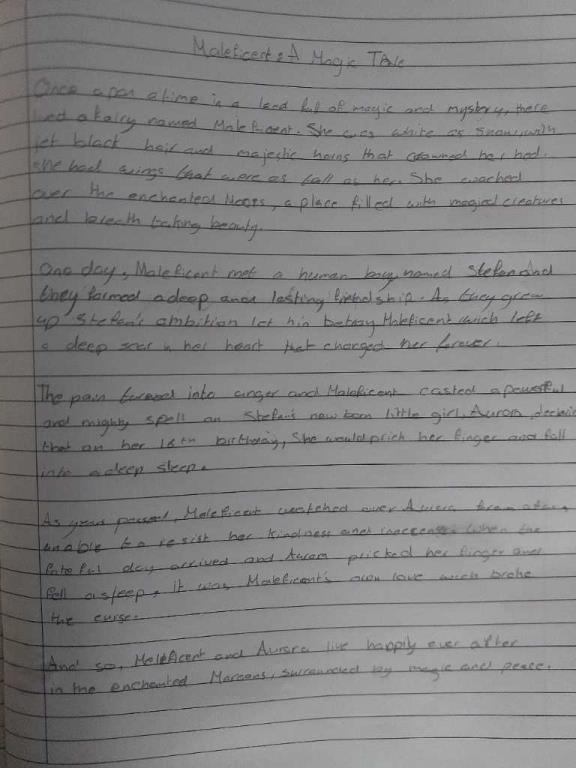 Maleficent: A Magic Tale
Once apon a time in a land ful of magic and mystery, there
lived a fairy named Maleficent. She was white as snow, with
jet black hair and majestic horns that crowned her hed.
She had wings that were as tall as her. She wached
over the enchanted Moors, a place filled with magical creatures
and breath taking beauty.
One day, Maleficent met a human boy named Stefan and
they formed a deep and lasting friendship. As they grew
up Stefan's ambition let him betray Maleficent wich left
a deep scar in her heart that changed her forever.
The pain turned into anger and Maleficent casted a powerful
and mighty spell on Stefan's new born little girl, Auror,
that on her 16th birthday, She would prick her finger and fall
into a deep sleep.
As years passed, Maleficent watched over Aurora from afar,
unable to resist her kindness and When the
fateful day arrived and Aurora pricked her finger and
fell asleep, It was Maleficent's own love wich broke
the curse.
And so, Maleficent and Aurora live happily ever after
in the enchanted surrounded by magic and peace.